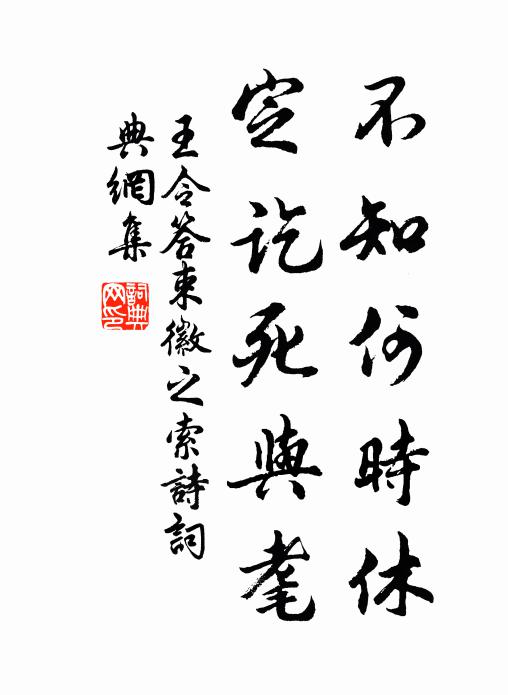 不知何時休
定訖死與耄
王令答束徽之索詩詞
典網集
詞典
网印